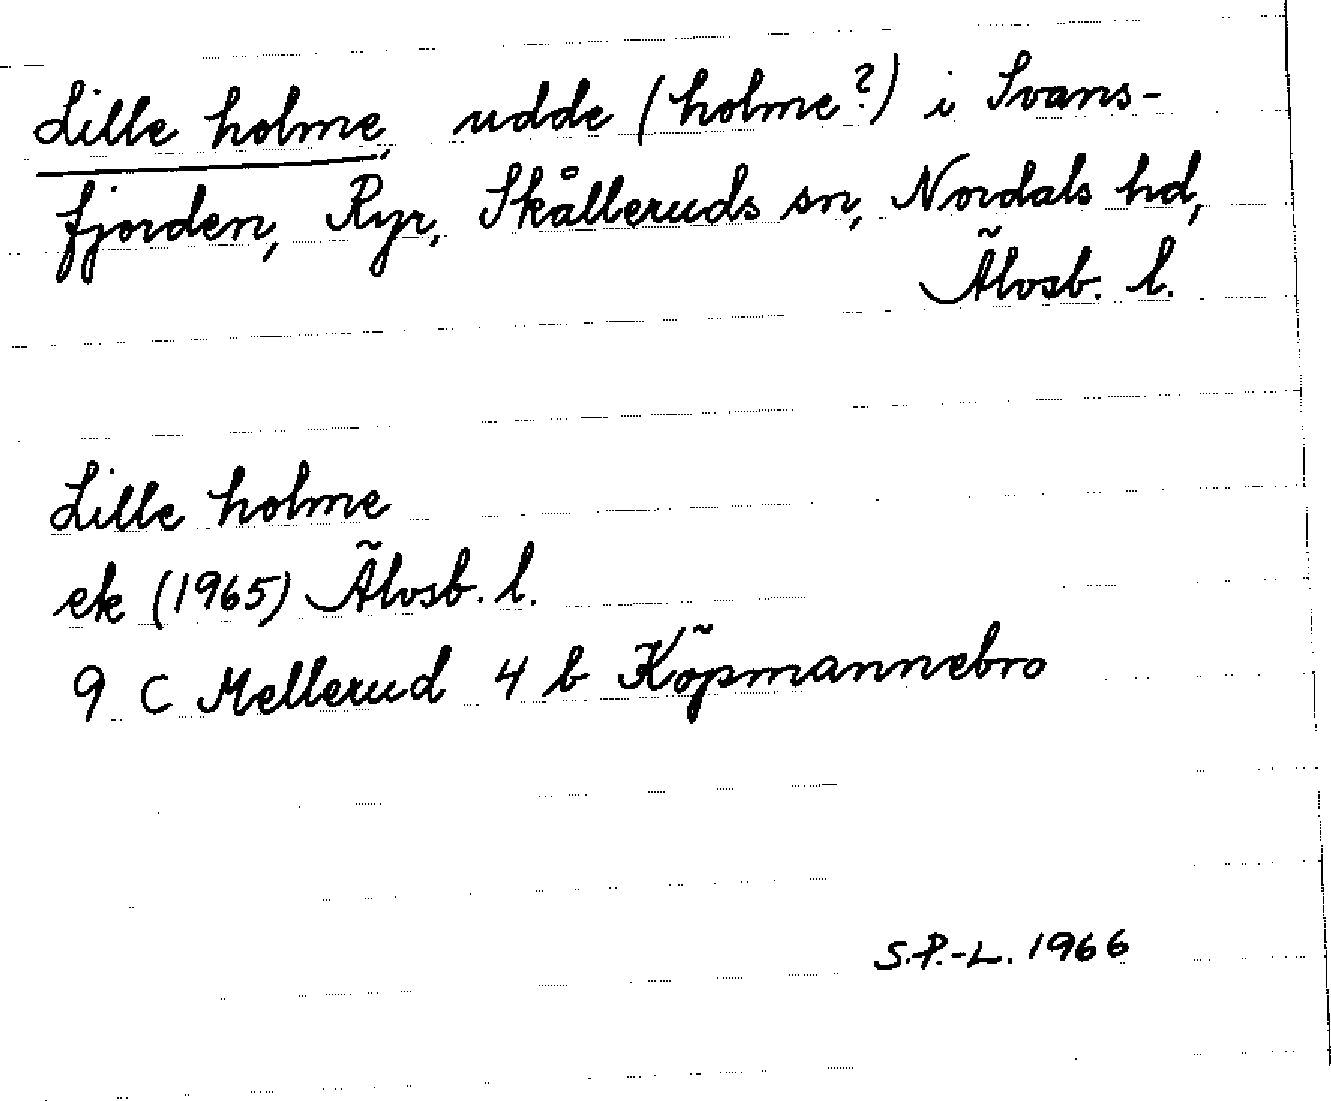 Lille holme, udde (holme?) i Svans-
fjorden, Ryr, Skålleruds sn, Nordals hd,
Älvsb. l.
Lille holme
ek (1965) Älvsb. l.
9 C Mellerud 4 b Köpmannebro
S.P.-L. 1966